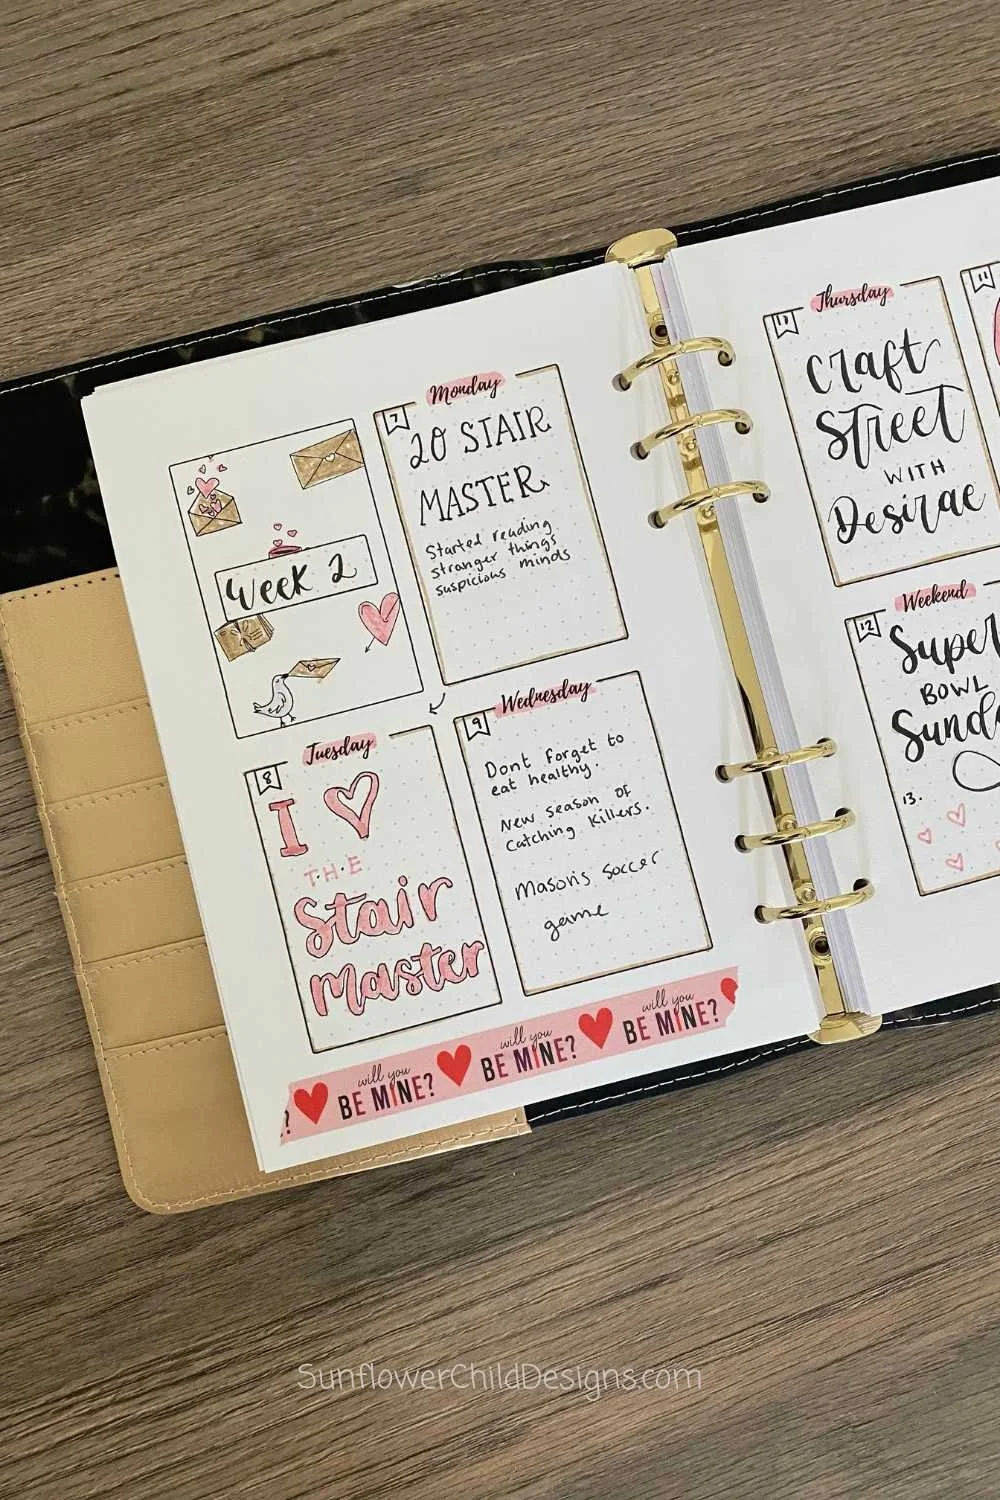 Week 2
Monday
7
20 STAIR
MASTER
Started reading
stranger things
suspicious minds
Tuesday
8
I
THE
Stair
Master
Wednesday
9
Dont forget to
eat healthy.
New season of
Catching Killers.
Masons soccer
game
will you
BE MINE?
will you
BE MINE?
will you
BE MINE?
Thursday
10
Craft
Street
WITH
Desirae
11
Weekend
12
Super
BOWL
Sunda
13.
SunflowerChildDesigns.com